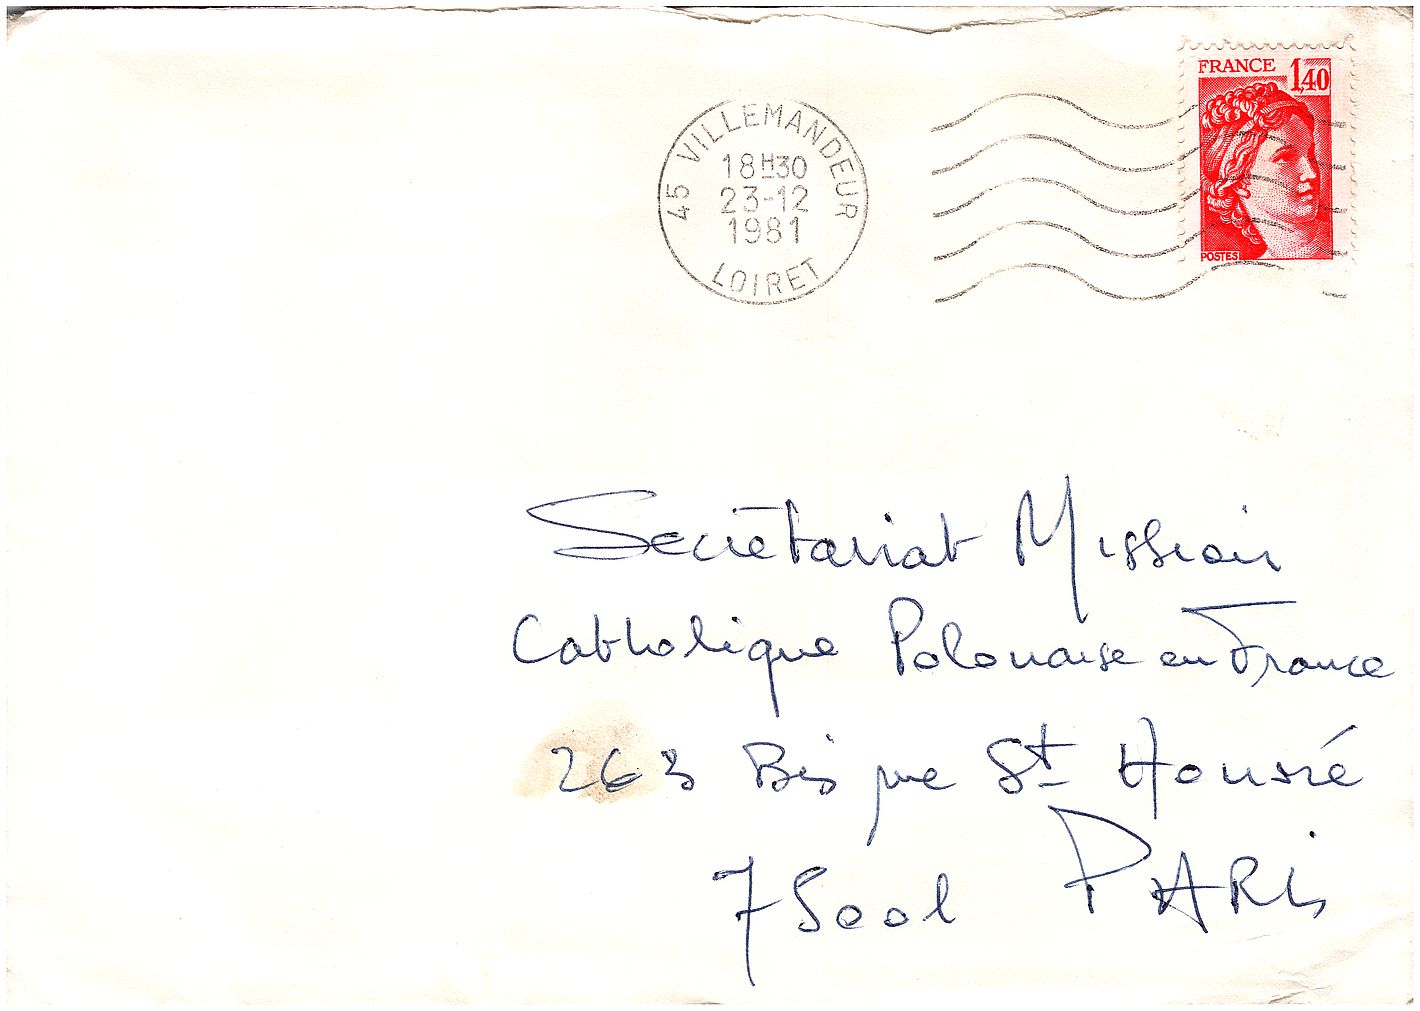 FRANCE 1,40
POSTES
45 VILLEMANDEUR
18H30
23-12
1981
LOIRET
Secrétariat Mission
Catholique Polonaise en France
263 Bis rue St Honoré
75001 PARIS